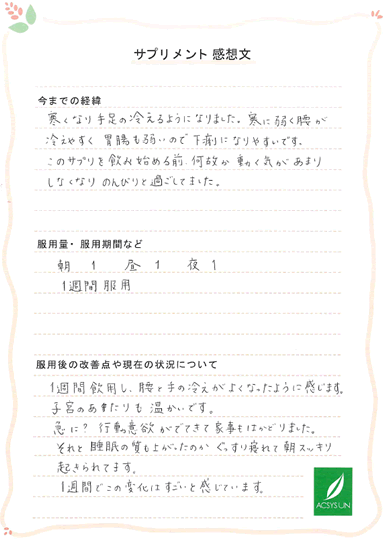 サプリメント 感想文
今までの経緯
寒くなり手足の冷えるようになりました。寒に弱く腰が
冷えやすく 胃腸も弱いので 下痢になりやすいです。
このサプリを飲み始める前、何故か 動く気が あまり
しなくなり のんびりと過ごしてました。
服用量・服用期間など
朝 1 昼 1 夜 1
1週間 服用
服用後の改善点や現在の状況について
1週間飲用し、腰と手の冷えがよくなったように感じます。
子宮のあたりも 温かいです。
急に? 行動意欲がでてきて家事もはかどりました。
それと 睡眠の質も上がったのか ぐっすり寝れて朝スッキリ
起きられてます。
1週間でこの変化はすごいと感じています。
ACSYSUN